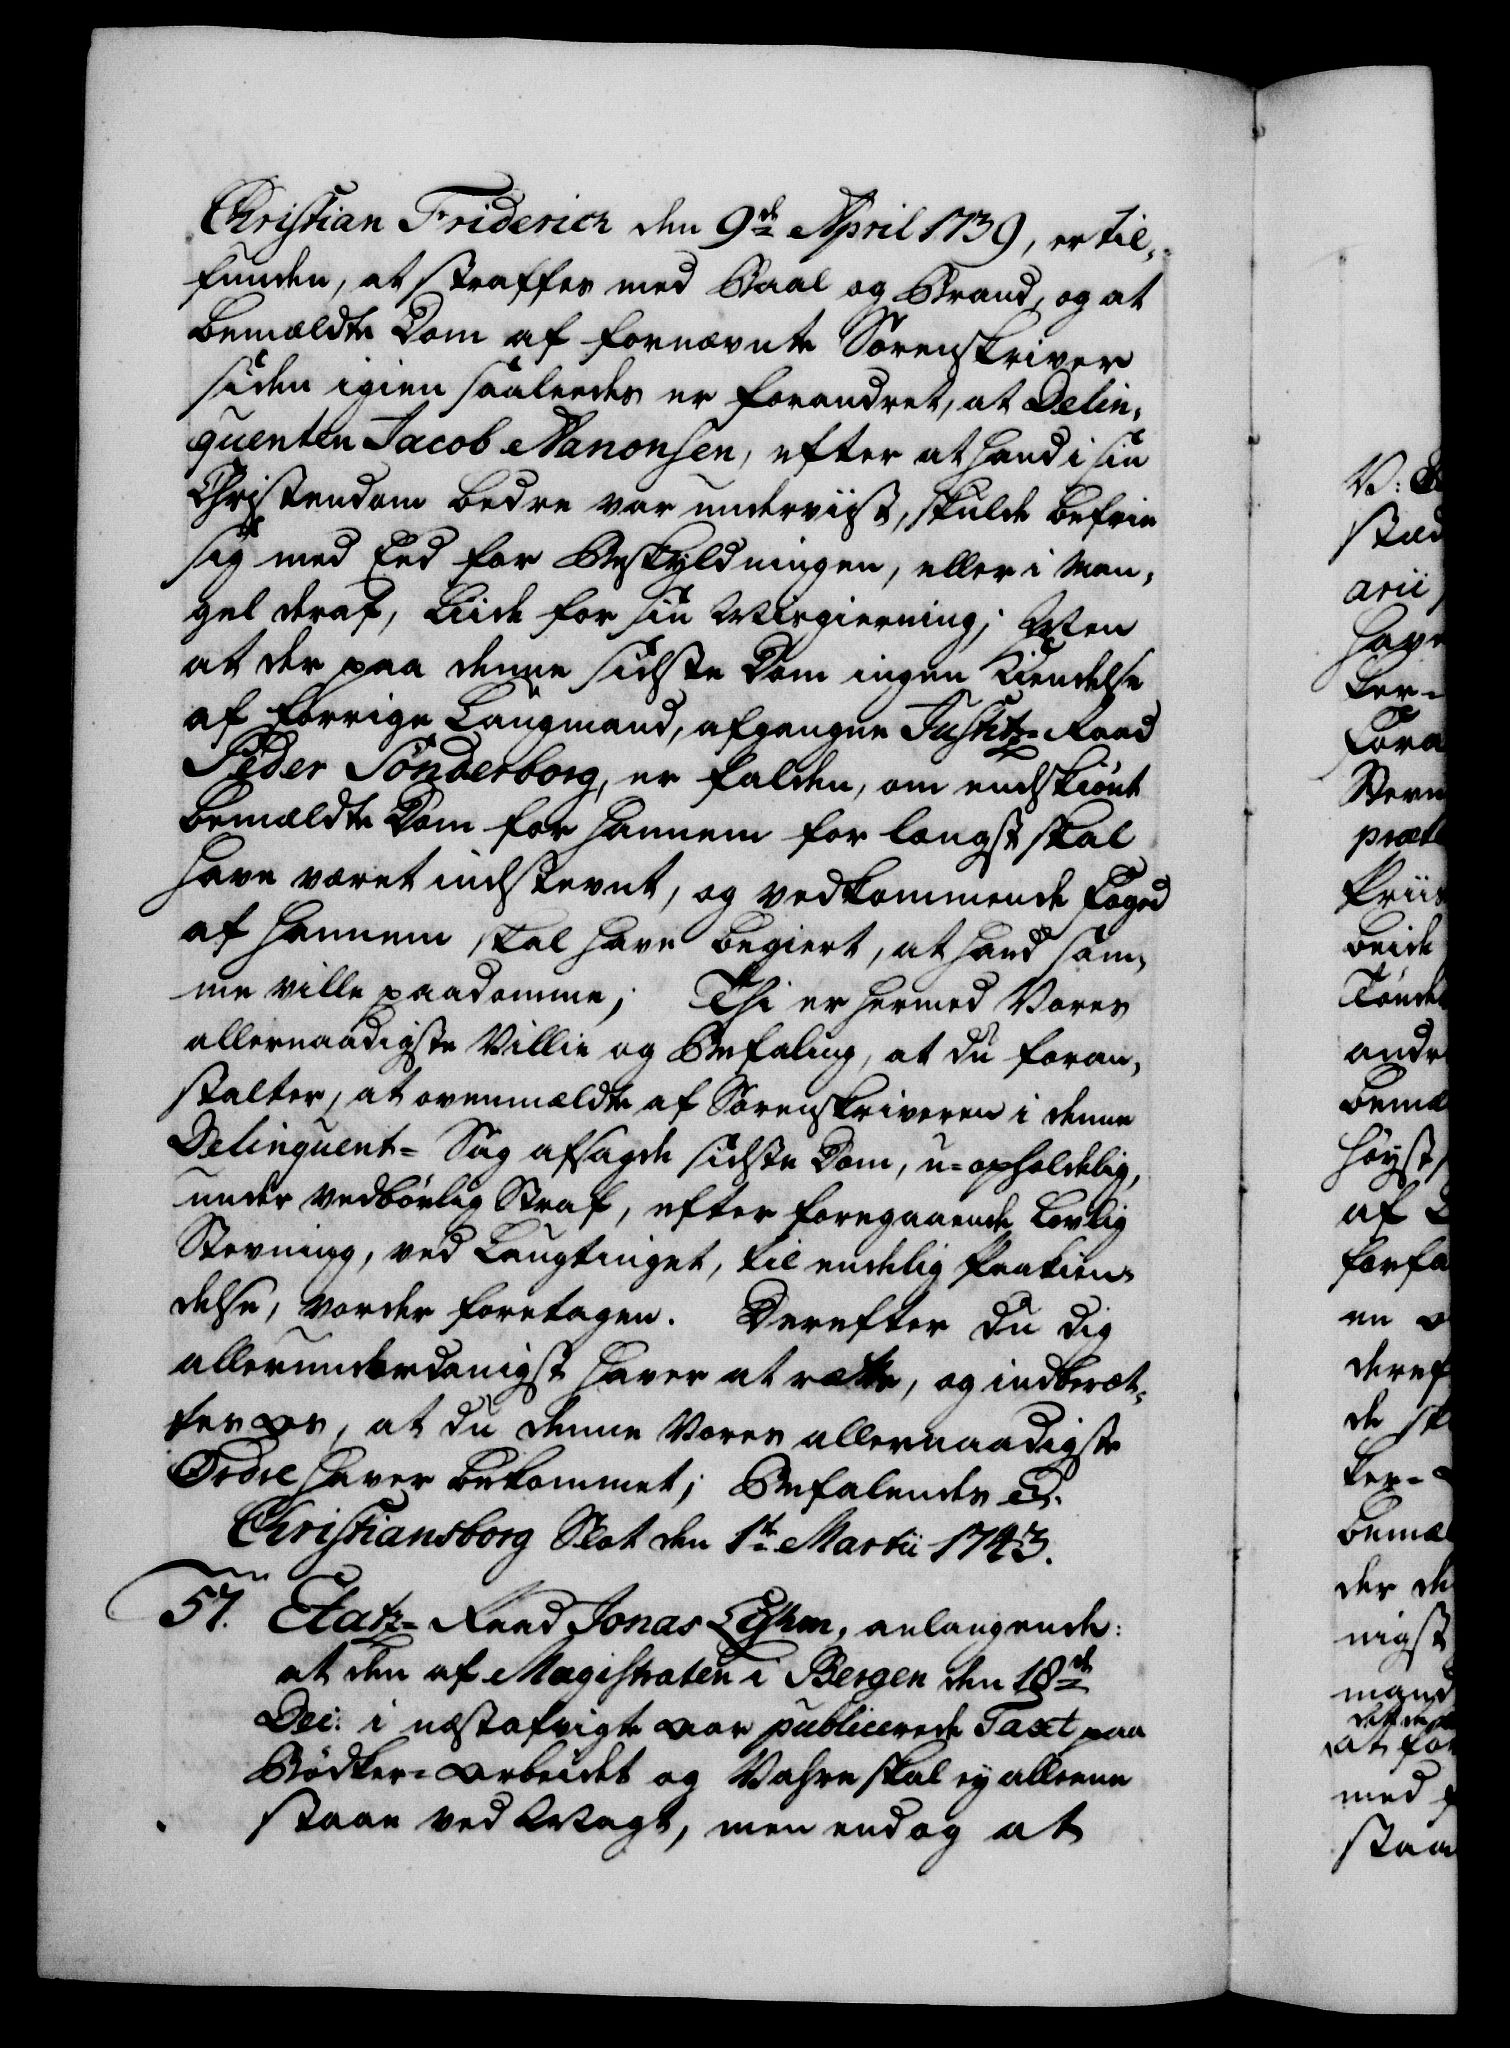 Christian Friderich den 9de April 1739, er til-
funden, at straffes med Baal og Brand, og at
bemældte Dom af fornævnte Sorenskriver
siden igien saaledes er forandret, at Delin-
quenten Jacob Nanonsen, efter at hand i sin
Christendom bedre var underviist, skulde befrie
sig med Eed for Beskyldningen, eller i Man-
gel deraf, Liide for sin Misgierning; Men
at der paa denne sidste Dom ingen Kiendelse
af forrige Laugmand, afgangne Justitz-Raad
Peder Sönderborg, er falden, om endskiönt
bemældte Dom for hannem for langst skal
have været indstevnt, og vedkommende Foged
af hannem skal have begiert, at hand sam-
me ville paadømme; Thi er hermed Vores
allernaadigste Villie og Befaling, at du foran-
stalter, at ovenmældte af Sorenskriveren i denne
Delinquent-Sag afsagde sidste Dom, u-opholdelig,
under vedbörlig Straf, efter foregaaende Lovlig
Stevning, ved Laugtinget, til endelig Paakien-
delse, vorder foretagen. Derefter du dig
allerunderdanigst haver at rette, og indberet-
tes os, at du denne Vores allernaadigste
Ordre haver bekommet; Befalendes &.
Christiansborg Slot den 1te Martii 1743.
57. Etatz-Raad Jonas Lyhm, anlangende:
at den af Magistraten i Bergen den 18de
Dec: i næstafvigte Aar publicerede Taxt paa
Bödker-Arbeidet og Vahre skal ey alleene
staae ved Magt, men endog at
V:
stæd
arii
have
Ker-
Fora
præt
beide
Tönde
andr
bemæ
höyst
af
forfa
en
deref
de sk
ker-
bemæl
der de
nigst
mand
at for
med
staa